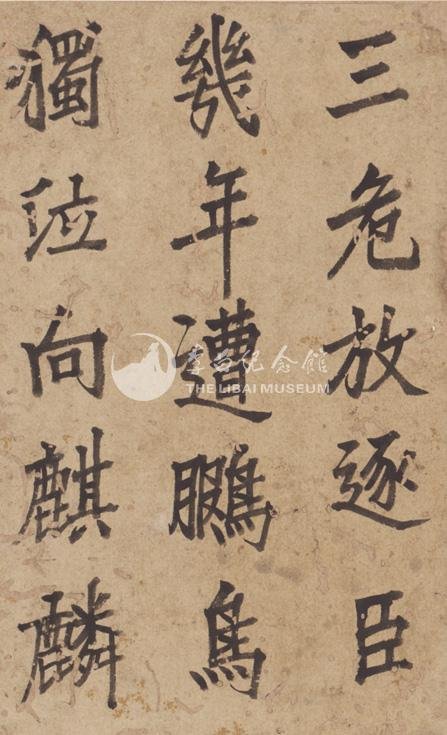 三危放逐臣
幾年遭鵩鳥
獨泣向麒麟
李白纪念馆
THE LIBAI MUSEUM